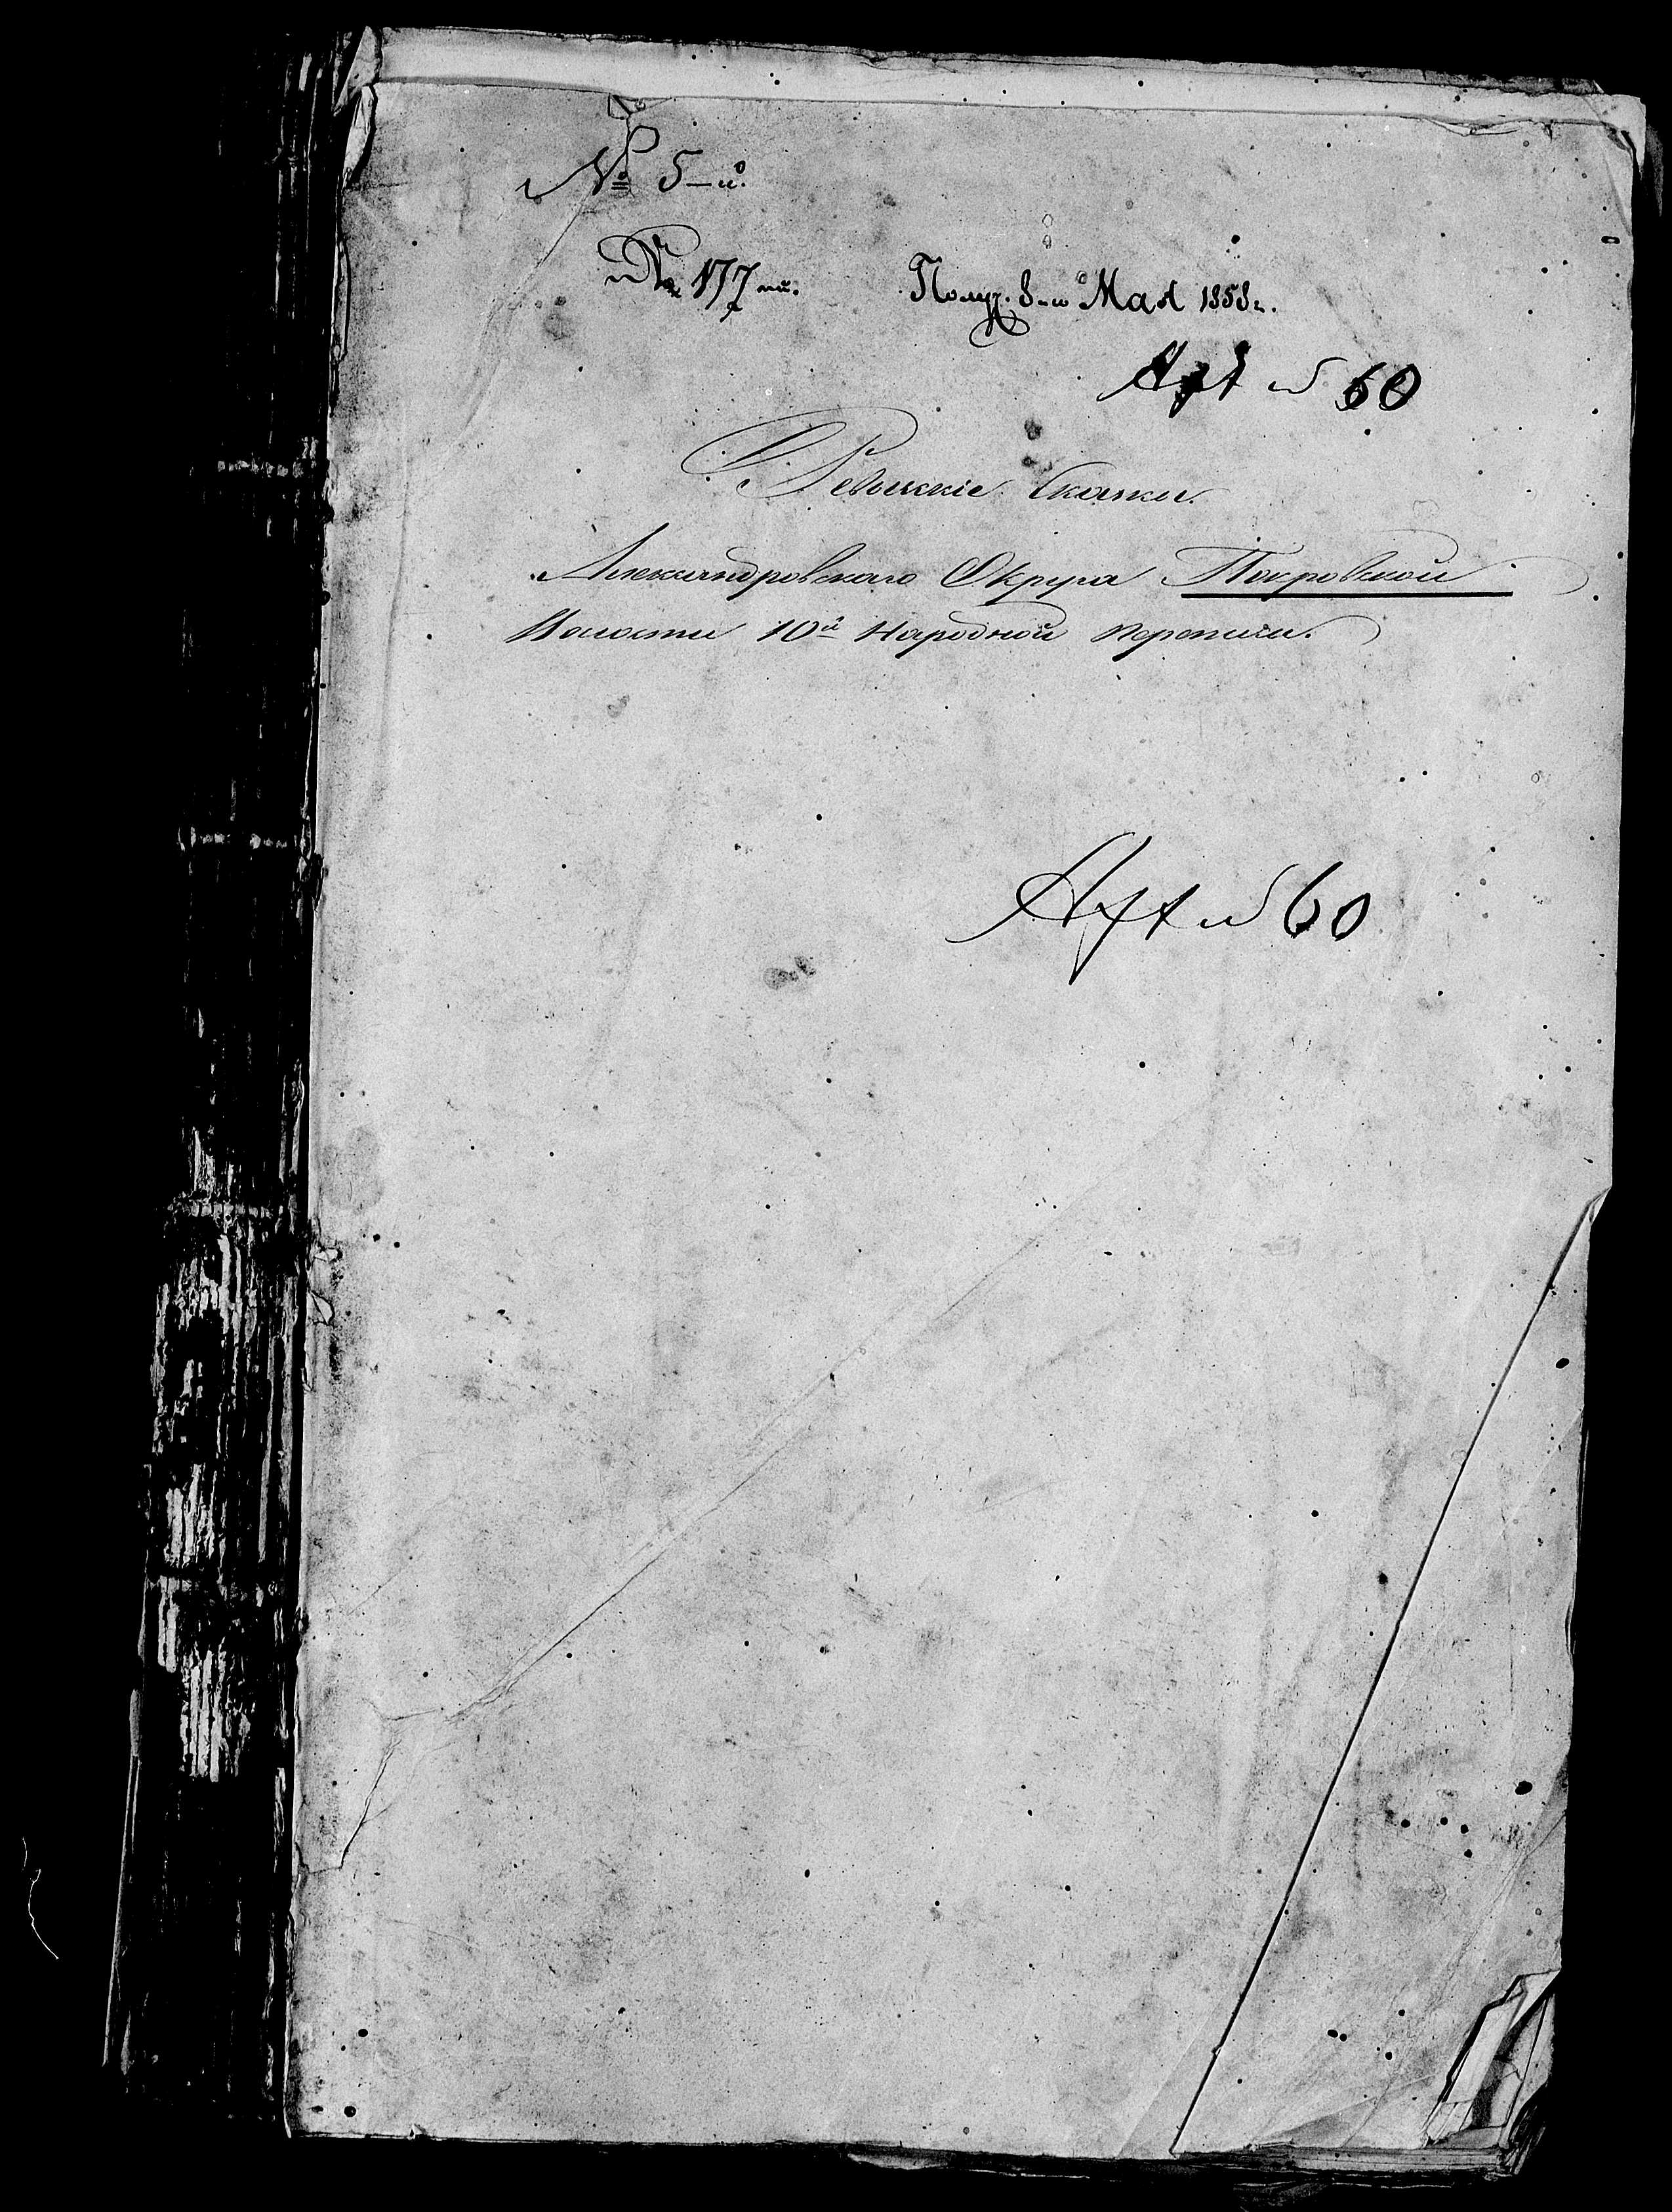 № 5-й.
№ 177-й. Получ. 8-го Мая 1858 г.
Арх № 60
Ревизкіе Сказки
Александровскаго Округа Покровской
Волости 10й Народной переписи.
Арх № 60